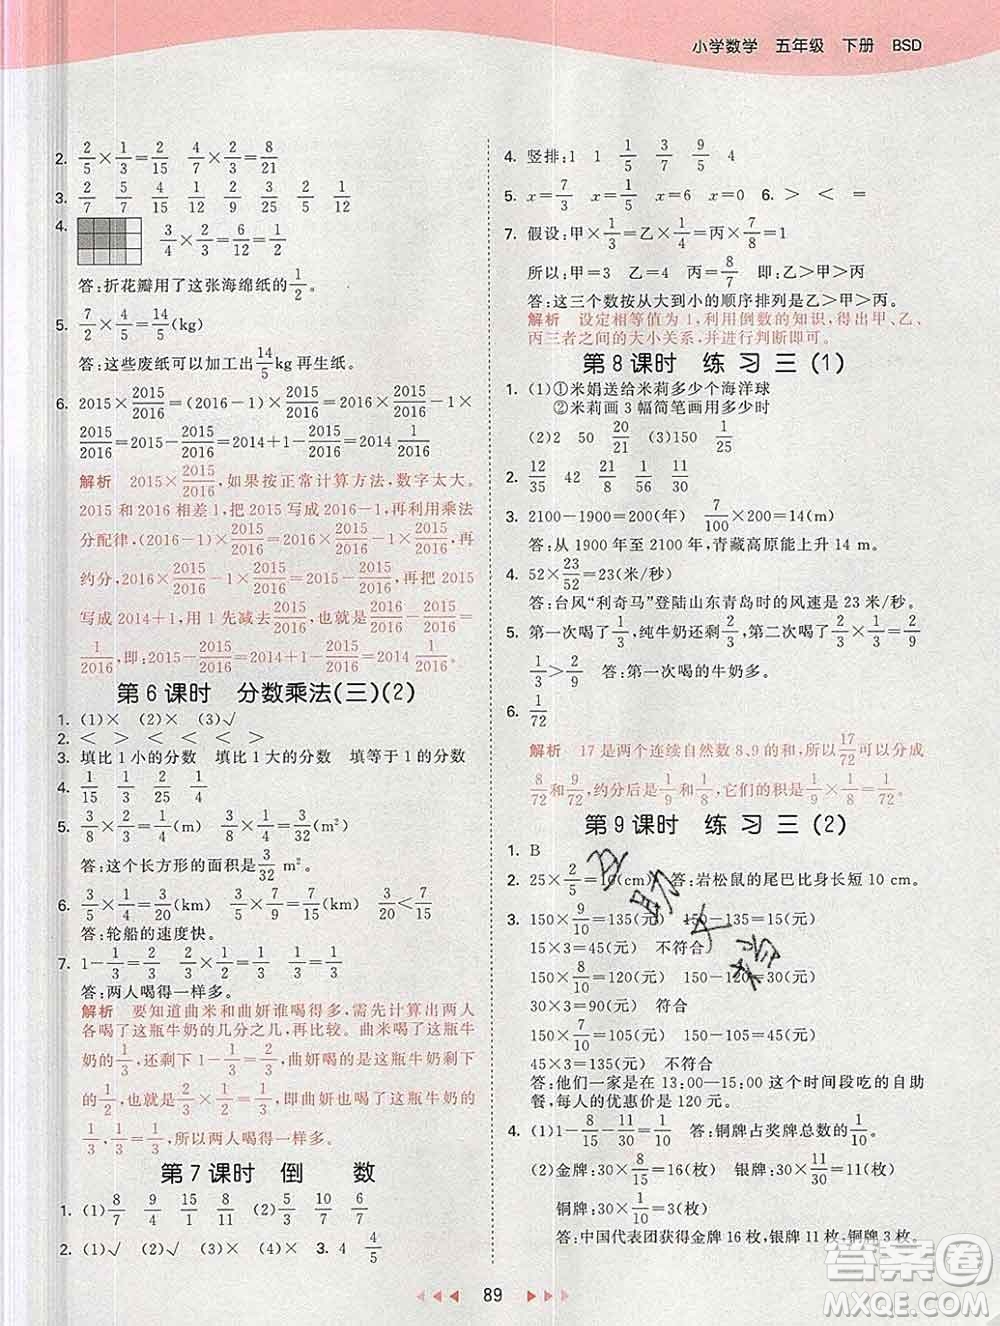 小学数学 五年级 下册 BSD
2. 2/5×1/3=2/15 4/7×2/3=8/21
3. 2/7 5/7 4/15 1/2 2/9 1/25 5/18 1/12
4. 3/4×2/3=6/12=1/2
答:折花瓣用了这张海绵纸的1/2。
5. 7/2×4/5=14/5(kg)
答:这些废纸可以加工出14/5kg再生纸。
6. 2015×2015/2016=(2016-1)×2015/2016=2016×2015/2016-1×
2015/2016=2015-2015/2016=2014+1-2015/2016=2014 1/2016
解析 2015×2015/2016,如果按正常计算方法,数字太大。
2015和2016相差1,把2015写成2016-1,再利用乘法
分配律,(2016-1)×2015/2016=2016×2015/2016-1×2015/2016,再
约分,2016×2015/2016-1×2015/2016=2015-2015/2016,再把2015
写成2014+1,用1先减去2015/2016,也就是1-2015/2016=
1/2016,即:2015-2015/2016=2014 1/2016。
第6课时 分数乘法(三)(2)
1. (1)× (2)× (3)√
2. < > < >
3. 填比1小的分数 填比1大的分数 填等于1的分数
4. 1/15 1/3 2/25 1/4
5. 3/8×2/3=1/4(m) 3/8×1/4=3/32(m²)
答:这个长方形的面积是3/32 m²。
6. 3/10×1/2=3/20(km) 1/5×3/4=3/20(km)
答:轮船的速度快。
7. 1-1/3=2/3 2/3×1/2=1/3 1/3=1/3
答:两人喝得一样多。
解析 要知道曲米和曲妍谁喝得多,需先计算出两人
各喝了这瓶牛奶的几分之几,再比较。曲米喝了这瓶牛
奶的1/3,还剩下1-1/3=2/3,曲妍喝的就是这瓶牛奶的
2/3×1/2=1/3,即曲妍也喝了这瓶牛奶的1/3,
1/3=1/3,所以两人喝得一样多。
第7课时 倒 数
1. (1)8/7 9/4 15/8 11/8 (2)7/8 10/7 6/7
2. (1)√ (2)√ (3)× (4)× 3. 4 4/5
4. 竖排:1 1 1/5 9/5 4
5. x=7/3 x=1/5 x=6 x=0 6. > < =
7. 假设:甲×1/3=乙×1/4=丙×7/8=1
所以:甲=3 乙=4 丙=8/7 即:乙>甲>丙
答:这三个数按从大到小的顺序排列是乙>甲>丙。
解析 设定相等值为1,利用倒数的知识,得出甲、乙、
丙三者之间的大小关系,并进行判断即可。
第8课时 练习三(1)
1. (1)①米娟送给米莉多少个海洋球
②米莉画3幅简笔画用多少时
(2)2 50 20/21 (3)150 1/25
2. 12/35 42 21/8 1/6 5/51
3. 2100-1900=200(年) 7/100×200=14(m)
答:从1900年至2100年,青藏高原能上升14 m。
4. 52×23/52=23(米/秒)
答:台风“利奇马”登陆山东青岛时的风速是23米/秒。
5. 第一次喝了1/3,纯牛奶还剩2/3,第二次喝了2/3×1/3=2/9
1/3>2/9 答:第一次喝的牛奶多。
6. 1/72
解析 17是两个连续自然数8、9的和,所以17/72可以分成
8/72和9/72,约分后是1/9和1/8,它们的积是1/9×1/8=1/72。
第9课时 练习三(2)
1. B
2. 25×2/5=10(cm) 答:岩松鼠的尾巴比身长短10 cm。
3. 150×9/10=135(元) 150-135=15(元)
15×3=45(元) 不符合
150×8/10=120(元) 150-120=30(元)
30×3=90(元) 符合
150×7/10=105(元) 150-105=45(元)
45×3=135(元) 不符合
答:他们一家是在13:00-15:00这个时间段吃的自助
餐,每人的优惠价是120元。
4. (1)1-8/15-11/30=1/10 答:铜牌占奖牌总数的1/10。
(2)金牌:30×8/15=16(枚) 银牌:30×11/30=11(枚)
铜牌:30×1/10=3(枚)
答:中国代表团获得金牌16枚,银牌11枚,铜牌3枚。
89
答案圈
MXQE.COM